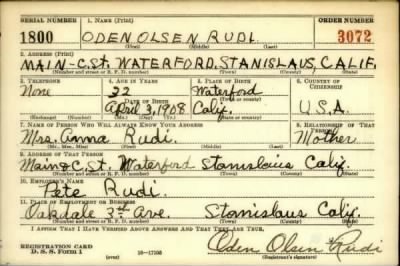 SERIAL NUMBER 1. NAME (Print) ORDER NUMBER
1800 ODEN OLSEN RUDI 3072
(First) (Middle) (Last)
2. ADDRESS (Print)
MAIN-C.St. WATERFORD, STANISLAUS, CALIF.
(Number and street or R. F. D. number) (Town) (County) (State)
3. TELEPHONE 4. AGE IN YEARS 5. PLACE OF BIRTH 6. COUNTRY OF CITIZENSHIP
None 32 Waterford
DATE OF BIRTH (Town or county)
April 3, 1908 Calif. U.S.A.
(Exchange) (Number) (Mo.) (Day) (Yr.) (State or country)
7. NAME OF PERSON WHO WILL ALWAYS KNOW YOUR ADDRESS 8. RELATIONSHIP OF THAT PERSON
Mrs. Anna Rudi Mother
(Mr., Mrs., Miss) (First) (Middle) (Last)
9. ADDRESS OF THAT PERSON
Main & C St. Waterford Stanislaus Calif.
(Number and street or R. F. D. number) (Town) (County) (State)
10. EMPLOYER'S NAME
Pete Rudi
11. PLACE OF EMPLOYMENT OR BUSINESS
Oakdale 3rd Ave. Stanislaus Calif.
(Number and street or R. F. D. number) (Town) (County) (State)
I AFFIRM THAT I HAVE VERIFIED ABOVE ANSWERS AND THAT THEY ARE TRUE.
REGISTRATION CARD
D. S. S. FORM 1 (over) 16-17105 Oden Olsen Rudi
(Registrant's signature)